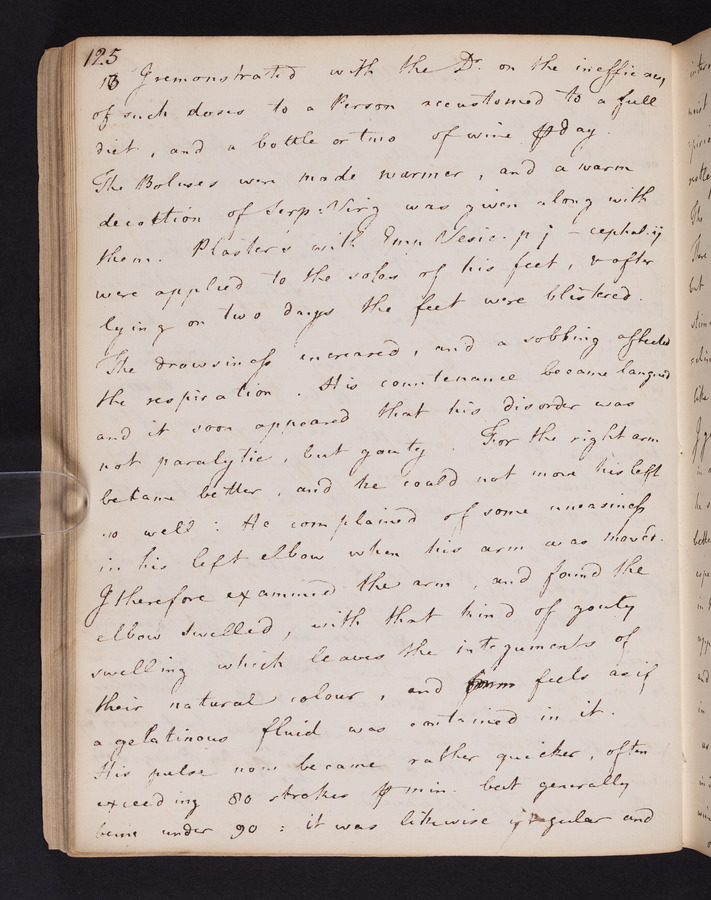 125
13 I remonstrated with the Dr. on the inefficacy
of such doses to a Person accustomed to a full
diet, and a bottle or two of wine ⅌ day.
The Boluses were made warmer, and a warm
decoction of Serp: Virg was given along with
them. Plasters with Emp Vesic. p j – cephal. ij
were applied to the soles of his feet, & after
lying on two days the feet were blistered.
The drowsiness increased, and a sobbing affected
the respiration. His countenance became languid
and it soon appeared that his disorder was
not paralytic, but gouty. For the right arm
became better, and he could not move his left
so well: He complained of some uneasiness
in his left elbow when his arm was moved.
I therefore examined the arm, and found the
elbow swelled, with that kind of gouty
swelling which leaves the integuments of
their natural colour, and feels as if
a gelatinous fluid was contained in it.
His pulse now became rather quicker, often
exceeding 80 strokes ⅌ min. but generally
being under 90: it was likewise irregular and